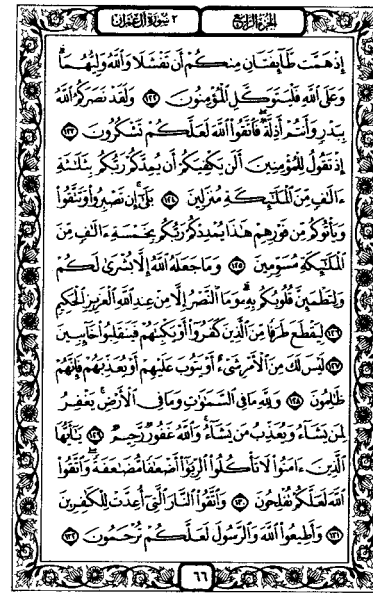 الجزء الرابع ٣ سورة آل عمران
إِذْ هَمَّت طَّآئِفَتَانِ مِنكُمْ أَن تَفْشَلَا وَٱللَّهُ وَلِيُّهُمَا ۗ
وَعَلَى ٱللَّهِ فَلْيَتَوَكَّلِ ٱلْمُؤْمِنُونَ ١٢٢ وَلَقَدْ نَصَرَكُمُ ٱللَّهُ
بِبَدْرٍ وَأَنتُمْ أَذِلَّةٌ ۖ فَٱتَّقُوا۟ ٱللَّهَ لَعَلَّكُمْ تَشْكُرُونَ ١٢٣
إِذْ تَقُولُ لِلْمُؤْمِنِينَ أَلَن يَكْفِيَكُمْ أَن يُمِدَّكُمْ رَبُّكُم بِثَلَٰثَةِ
ءَالَٰفٍ مِّنَ ٱلْمَلَٰٓئِكَةِ مُنزَلِينَ ١٢٤ بَلَىٰٓ ۚ إِن تَصْبِرُوا۟ وَتَتَّقُوا۟
وَيَأْتُوكُم مِّن فَوْرِهِمْ هَٰذَا يُمْدِدْكُمْ رَبُّكُم بِخَمْسَةِ ءَالَٰفٍ مِّنَ
ٱلْمَلَٰٓئِكَةِ مُسَوِّمِينَ ١٢٥ وَمَا جَعَلَهُ ٱللَّهُ إِلَّا بُشْرَىٰ لَكُمْ
وَلِتَطْمَئِنَّ قُلُوبُكُم بِهِۦ ۗ وَمَا ٱلنَّصْرُ إِلَّا مِنْ عِندِ ٱللَّهِ ٱلْعَزِيزِ ٱلْحَكِيمِ
١٢٦ لِيَقْطَعَ طَرَفًا مِّنَ ٱلَّذِينَ كَفَرُوٓا۟ أَوْ يَكْبِتَهُمْ فَيَنقَلِبُوا۟ خَآئِبِينَ
١٢٧ لَيْسَ لَكَ مِنَ ٱلْأَمْرِ شَىْءٌ أَوْ يَتُوبَ عَلَيْهِمْ أَوْ يُعَذِّبَهُمْ فَإِنَّهُمْ
ظَٰلِمُونَ ١٢٨ وَلِلَّهِ مَا فِى ٱلسَّمَٰوَٰتِ وَمَا فِى ٱلْأَرْضِ ۚ يَغْفِرُ
لِمَن يَشَآءُ وَيُعَذِّبُ مَن يَشَآءُ ۚ وَٱللَّهُ غَفُورٌ رَّحِيمٌ ١٢٩ يَٰٓأَيُّهَا
ٱلَّذِينَ ءَامَنُوا۟ لَا تَأْكُلُوا۟ ٱلرِّبَوٰٓا۟ أَضْعَٰفًا مُّضَٰعَفَةً ۖ وَٱتَّقُوا۟
ٱللَّهَ لَعَلَّكُمْ تُفْلِحُونَ ١٣٠ وَٱتَّقُوا۟ ٱلنَّارَ ٱلَّتِىٓ أُعِدَّتْ لِلْكَٰفِرِينَ
١٣١ وَأَطِيعُوا۟ ٱللَّهَ وَٱلرَّسُولَ لَعَلَّكُمْ تُرْحَمُونَ ١٣٢
٦٦